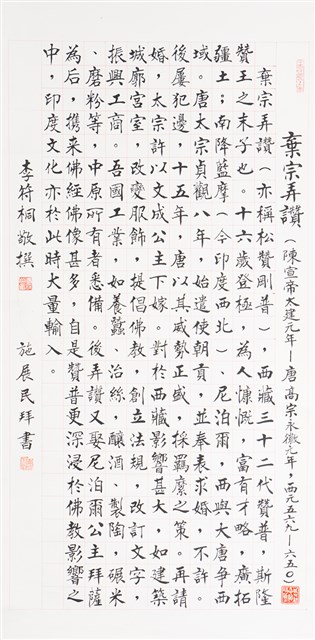 棄宗弄讚（陳宣帝太建元年—唐高宗永徽元年，西元五六九—六五○）
棄宗弄讚（亦稱松贊剛普），西藏三十二代贊普，斯隆
贊王之末子也。十六歲登極，為人慷慨，富有才略，廣拓
疆土；南降藍摩（今印度西北）、尼泊爾，西與大唐爭西
域。唐太宗貞觀八年，始遣使朝貢，並奉表求婚，不許。
後屢犯邊，十五年，唐以其威勢正盛，採羈縻之策。再請
婚，太宗許以文成公主下嫁。對於西藏影響甚大，如建築
城廓宮室，改變服飾，提倡佛教，創立法規，改訂文字，
振興工商。吾國工業，如養蠶、治絲，釀酒、製陶，碾米
、磨粉等，中原所有者悉備。後弄讚又娶尼泊爾公主拜薩
為后，携来佛經佛像甚多，自是贊普更深浸於佛教影響之
中，印度文化亦於此時大量輸入。
李符桐敬撰　施展民拜書